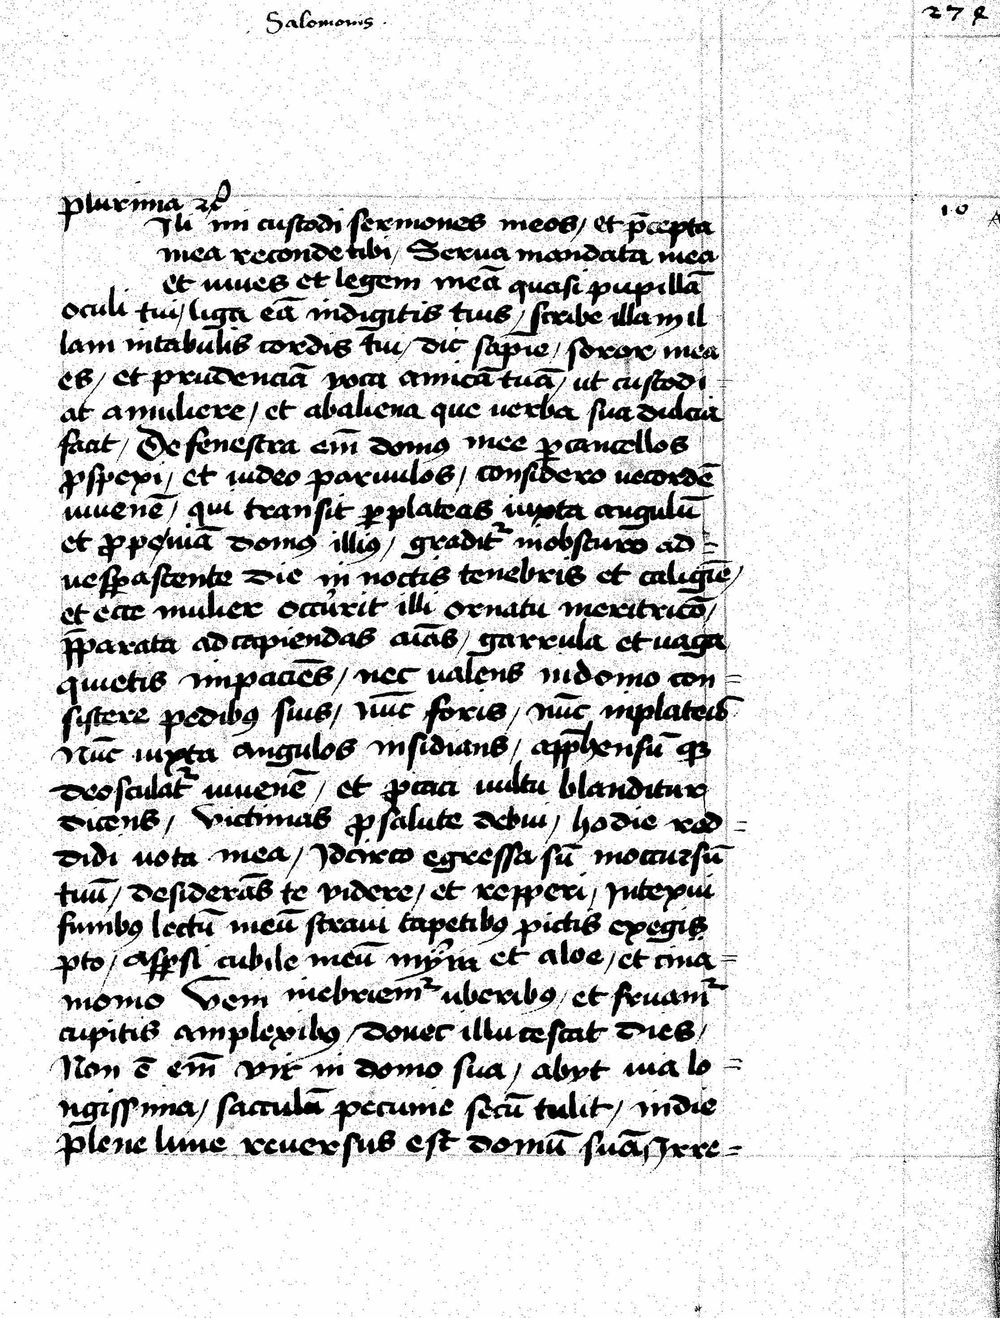 Salomonis ·
274
plurima ⁊c̄
10
Ili mi custodi sermones meos / et p̄cepta
mea reconde tibi / Serua mandata mea
et uiues et legem meā quasi pupillā
oculi tui / liga eā indigitis tuis / scribe illam il
lam intabulis cordis tui / dic sapīe / soror mea
es / et prudenciā uoca amicā tuā / ut custodi =
at amuliere / et abaliena que uerba sua dulcia
facit / De fenestra em̄ domꝰ mee ꝑ cancellos
ꝓspexi / et uideo paruulos / considero uecordē
iuuenē / qui transit ꝑ plateas iuxta angulū
et ꝓpe uiā domꝰ illiꝰ / gradit᷑ inobscuro ad =
uesꝑascente die in noctis tenebris et caligīe /
et ecce mulier occurrit illi ornatu meritricō /
p̄parata adcapiendas aīas / garrula et uaga
quietis impaciēs / nec ualens indomo con =
sistere pedibꝰ suis / nūc foris / nūc inplateis
Nūc iuxta angulos insidians / app̄hensū qꝫ
deosculat᷑ iuuenē / et ꝓcaci uultu blanditur
dicens / Victimas ꝓ salute debui / hodie red =
didi uota mea / Idcirco egressa sū inoccursū
tuū / desiderās te videre / et repperi / Intexui
funibꝰ lectū meū straui tapetibꝰ pictis exegip
pto / asꝑsi cubile meū myrra et aloe / et cina =
momo Veni inebriem᷑ uberibꝰ / et fruam᷑
cupitis amplexibꝰ / donec illucescat dies /
Non ē em̄ vir in domo sua / abyt uia lo =
ngissima / sacculū pecunie secū tulit / indie
plene lune reuersus est domū suā / Irre =